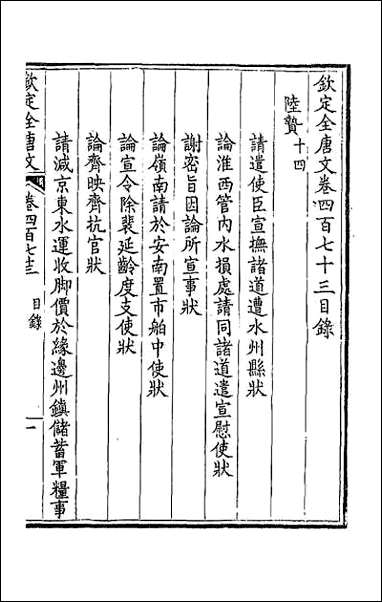 欽定全唐文卷四百七十三目錄
陸贄十四
請遣使臣宣撫諸道遭水州縣狀
論淮西管內水損處請同諸道遣宣慰使狀
謝密旨因論所宣事狀
論嶺南請於安南置市舶中使狀
論宣令除裴延齡度支使狀
論齊映齊抗官狀
請減京東水運收脚價於緣邊州鎮儲蓄軍糧事
欽定全唐文 卷四百七十三 目錄 一